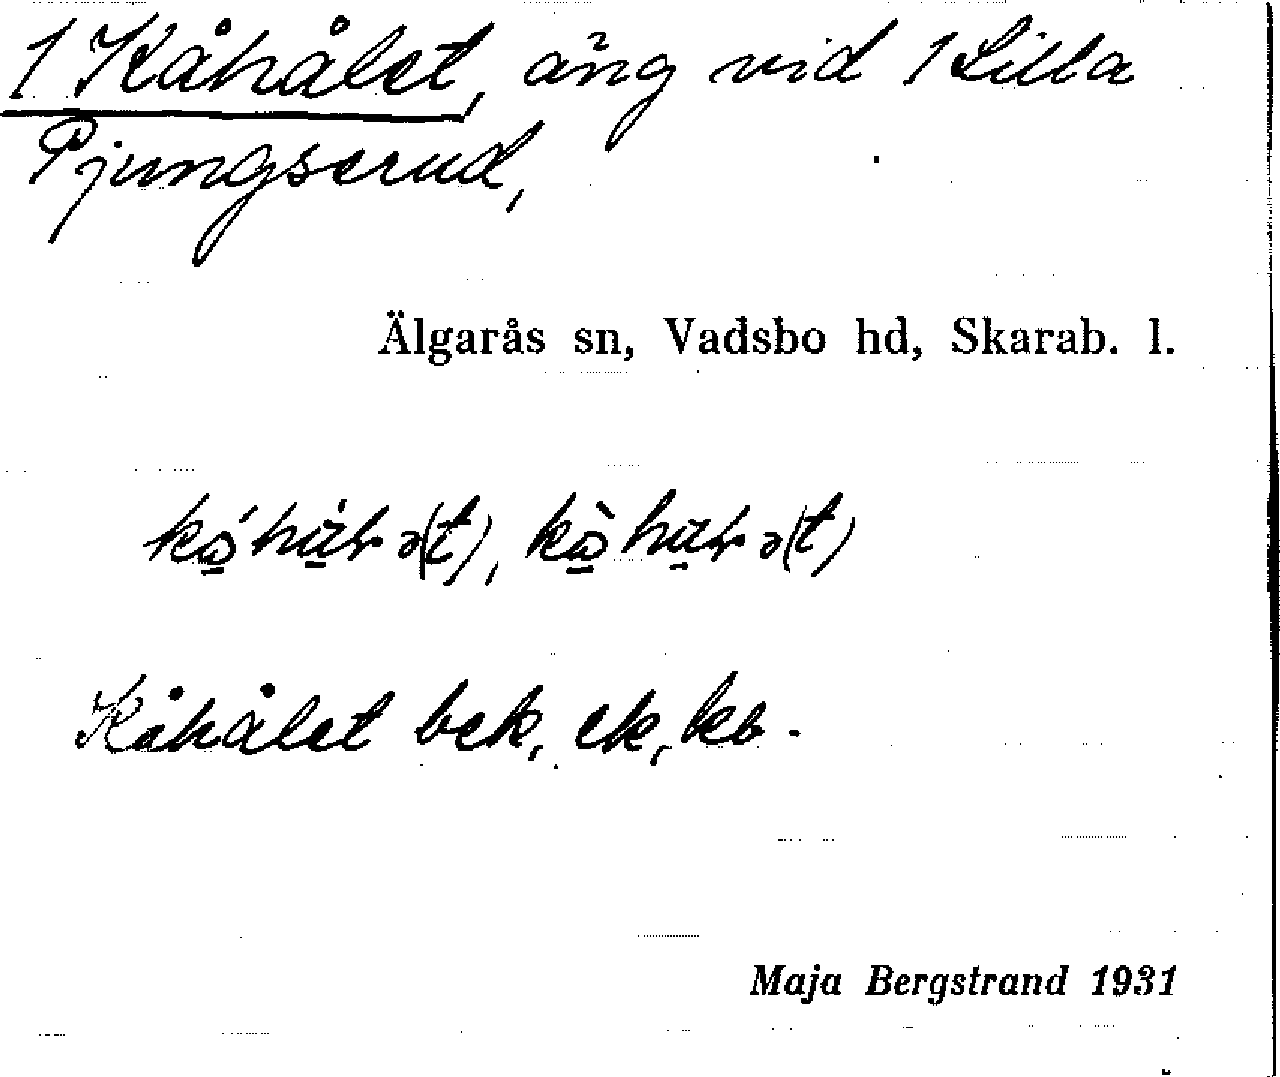 1 Kåhålet, äng vid 1 Lilla
Pjungserud,
Älgarås sn, Vadsbo hd, Skarab. l.
Kåhålet bek, ek, kb.
Maja Bergstrand 1931